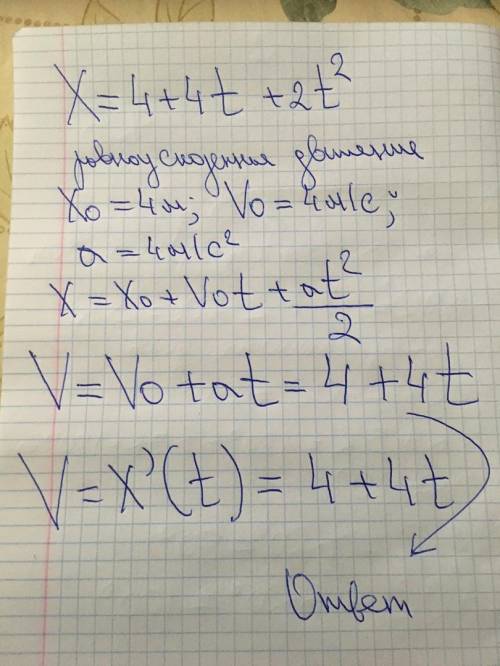 X = 4 + 4t + 2t²
равноускорення движение
X₀ = 4м; V₀ = 4м/с;
a = 4м/с²
X = X₀ + V₀t + at²/2
V = V₀ + at = 4 + 4t
V = X'(t) = 4 + 4t
Ответ